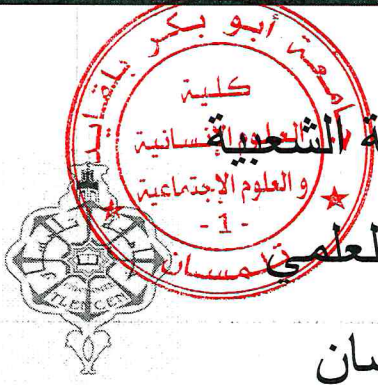 جامعة أبو بكر بلقايد
كلية
العلوم الإنسانية
و العلوم الإجتماعية
- 1 -
تلمسان
الشعبية
العلمي
TLEMCEN